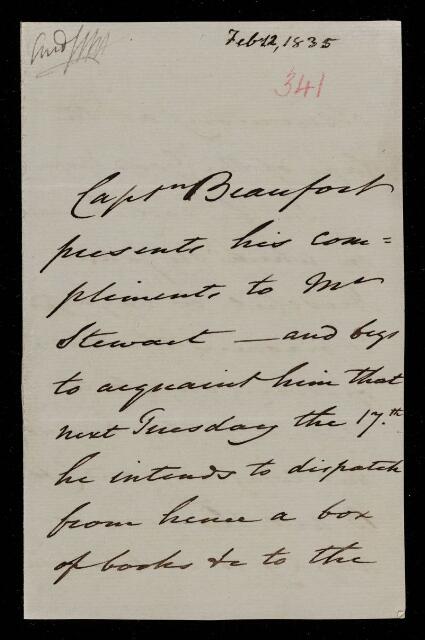 Feb 12, 1835
341
Captn Beaufort
presents his com=
pliments to Mr
Stewart — and begs
to acquaint him that
next Tuesday the 17.th
he intends to dispatch
from hence a box
of books &c to the